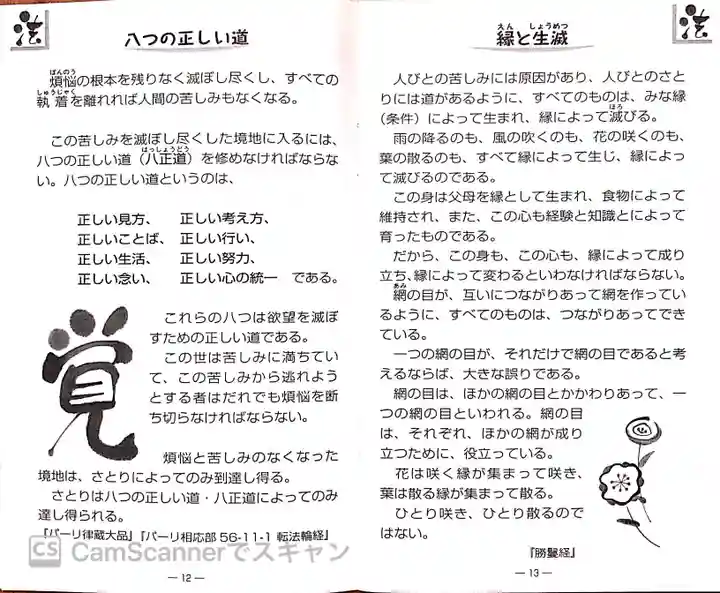 法
八つの正しい道
煩悩の根本を残りなく滅ぼし尽くし、すべての
執着を離れれば人間の苦しみもなくなる。
この苦しみを滅ぼし尽くした境地に入るには、
八つの正しい道（八正道）を修めなければならな
い。八つの正しい道というのは、
正しい見方、 正しい考え方、
正しいことば、 正しい行い、
正しい生活、 正しい努力、
正しい念い、 正しい心の統一 である。
覚
これらの八つは欲望を滅ぼ
すための正しい道である。
この世は苦しみに満ちてい
て、この苦しみから逃れよう
とする者はだれでも煩悩を断
ち切らなければならない。
煩悩と苦しみのなくなった
境地は、さとりによってのみ到達し得る。
さとりは八つの正しい道・八正道によってのみ
達し得られる。
『パーリ律蔵大品』『パーリ相応部 56-11-1 転法輪経』
CS CamScannerでスキャン
― 12 ―
法
縁と生滅
人びとの苦しみには原因があり、人びとのさと
りには道があるように、すべてのものは、みな縁
（条件）によって生まれ、縁によって滅びる。
雨の降るのも、風の吹くのも、花の咲くのも、
葉の散るのも、すべて縁によって生じ、縁によっ
て滅びるのである。
この身は父母を縁として生まれ、食物によって
維持され、また、この心も経験と知識とによって
育ったものである。
だから、この身も、この心も、縁によって成り
立ち、縁によって変わるといわなければならない。
網の目が、互いにつながりあって網を作ってい
るように、すべてのものは、つながりあってでき
ている。
一つの網の目が、それだけで網の目であると考
えるならば、大きな誤りである。
網の目は、ほかの網の目とかかわりあって、一
つの網の目といわれる。網の目
は、それぞれ、ほかの網が成り
立つために、役立っている。
花は咲く縁が集まって咲き、
葉は散る縁が集まって散る。
ひとり咲き、ひとり散るので
はない。
『勝鬘経』
― 13 ―